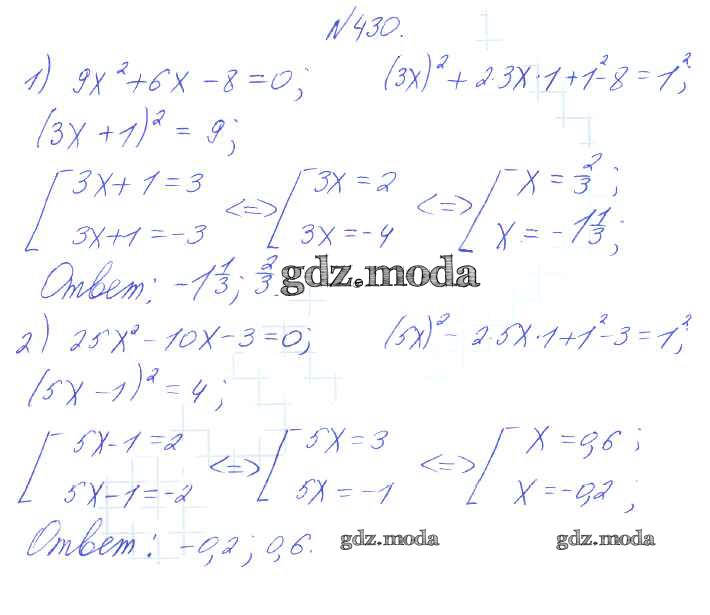 №430.
1) 9x² + 6x - 8 = 0; (3x)² + 2·3x·1 + 1² - 8 = 1²;
(3x + 1)² = 9;
[ 3x + 1 = 3 <=> [ 3x = 2 <=> [ x = 2/3 ;
3x + 1 = -3 3x = -4 x = -1 1/3 ;
Ответ: -1 1/3 ; 2/3 .
gdz.moda
2) 25x² - 10x - 3 = 0; (5x)² - 2·5x·1 + 1² - 3 = 1²;
(5x - 1)² = 4;
[ 5x - 1 = 2 <=> [ 5x = 3 <=> [ x = 0,6 ;
5x - 1 = -2 5x = -1 x = -0,2 ;
Ответ: -0,2 ; 0,6.
gdz.moda gdz.moda